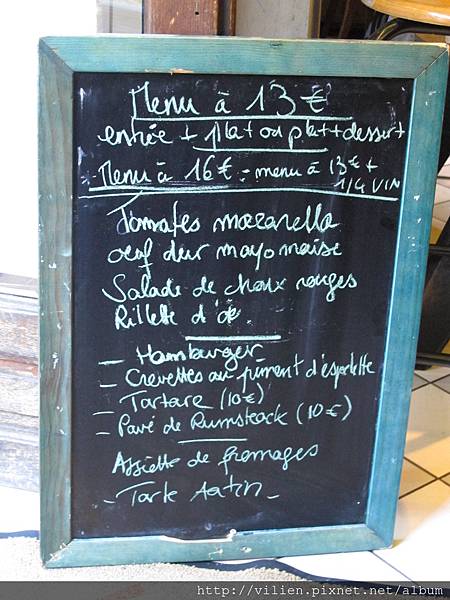 Menu à 13€
entrée + plat ou plat + dessert
Menu à 16€ = menu à 13€ +
1/4 VIN
Tomates mozarella
œuf dur mayonnaise
Salade de choux rouges
Rillette d'oie
- Hamburger
- Crevettes au piment d'espelette
- Tartare (10€)
- Pavé de Rumsteack (10€)
Assiette de fromages
- Tarte tatin -
http://vilien.pixnet.net/album